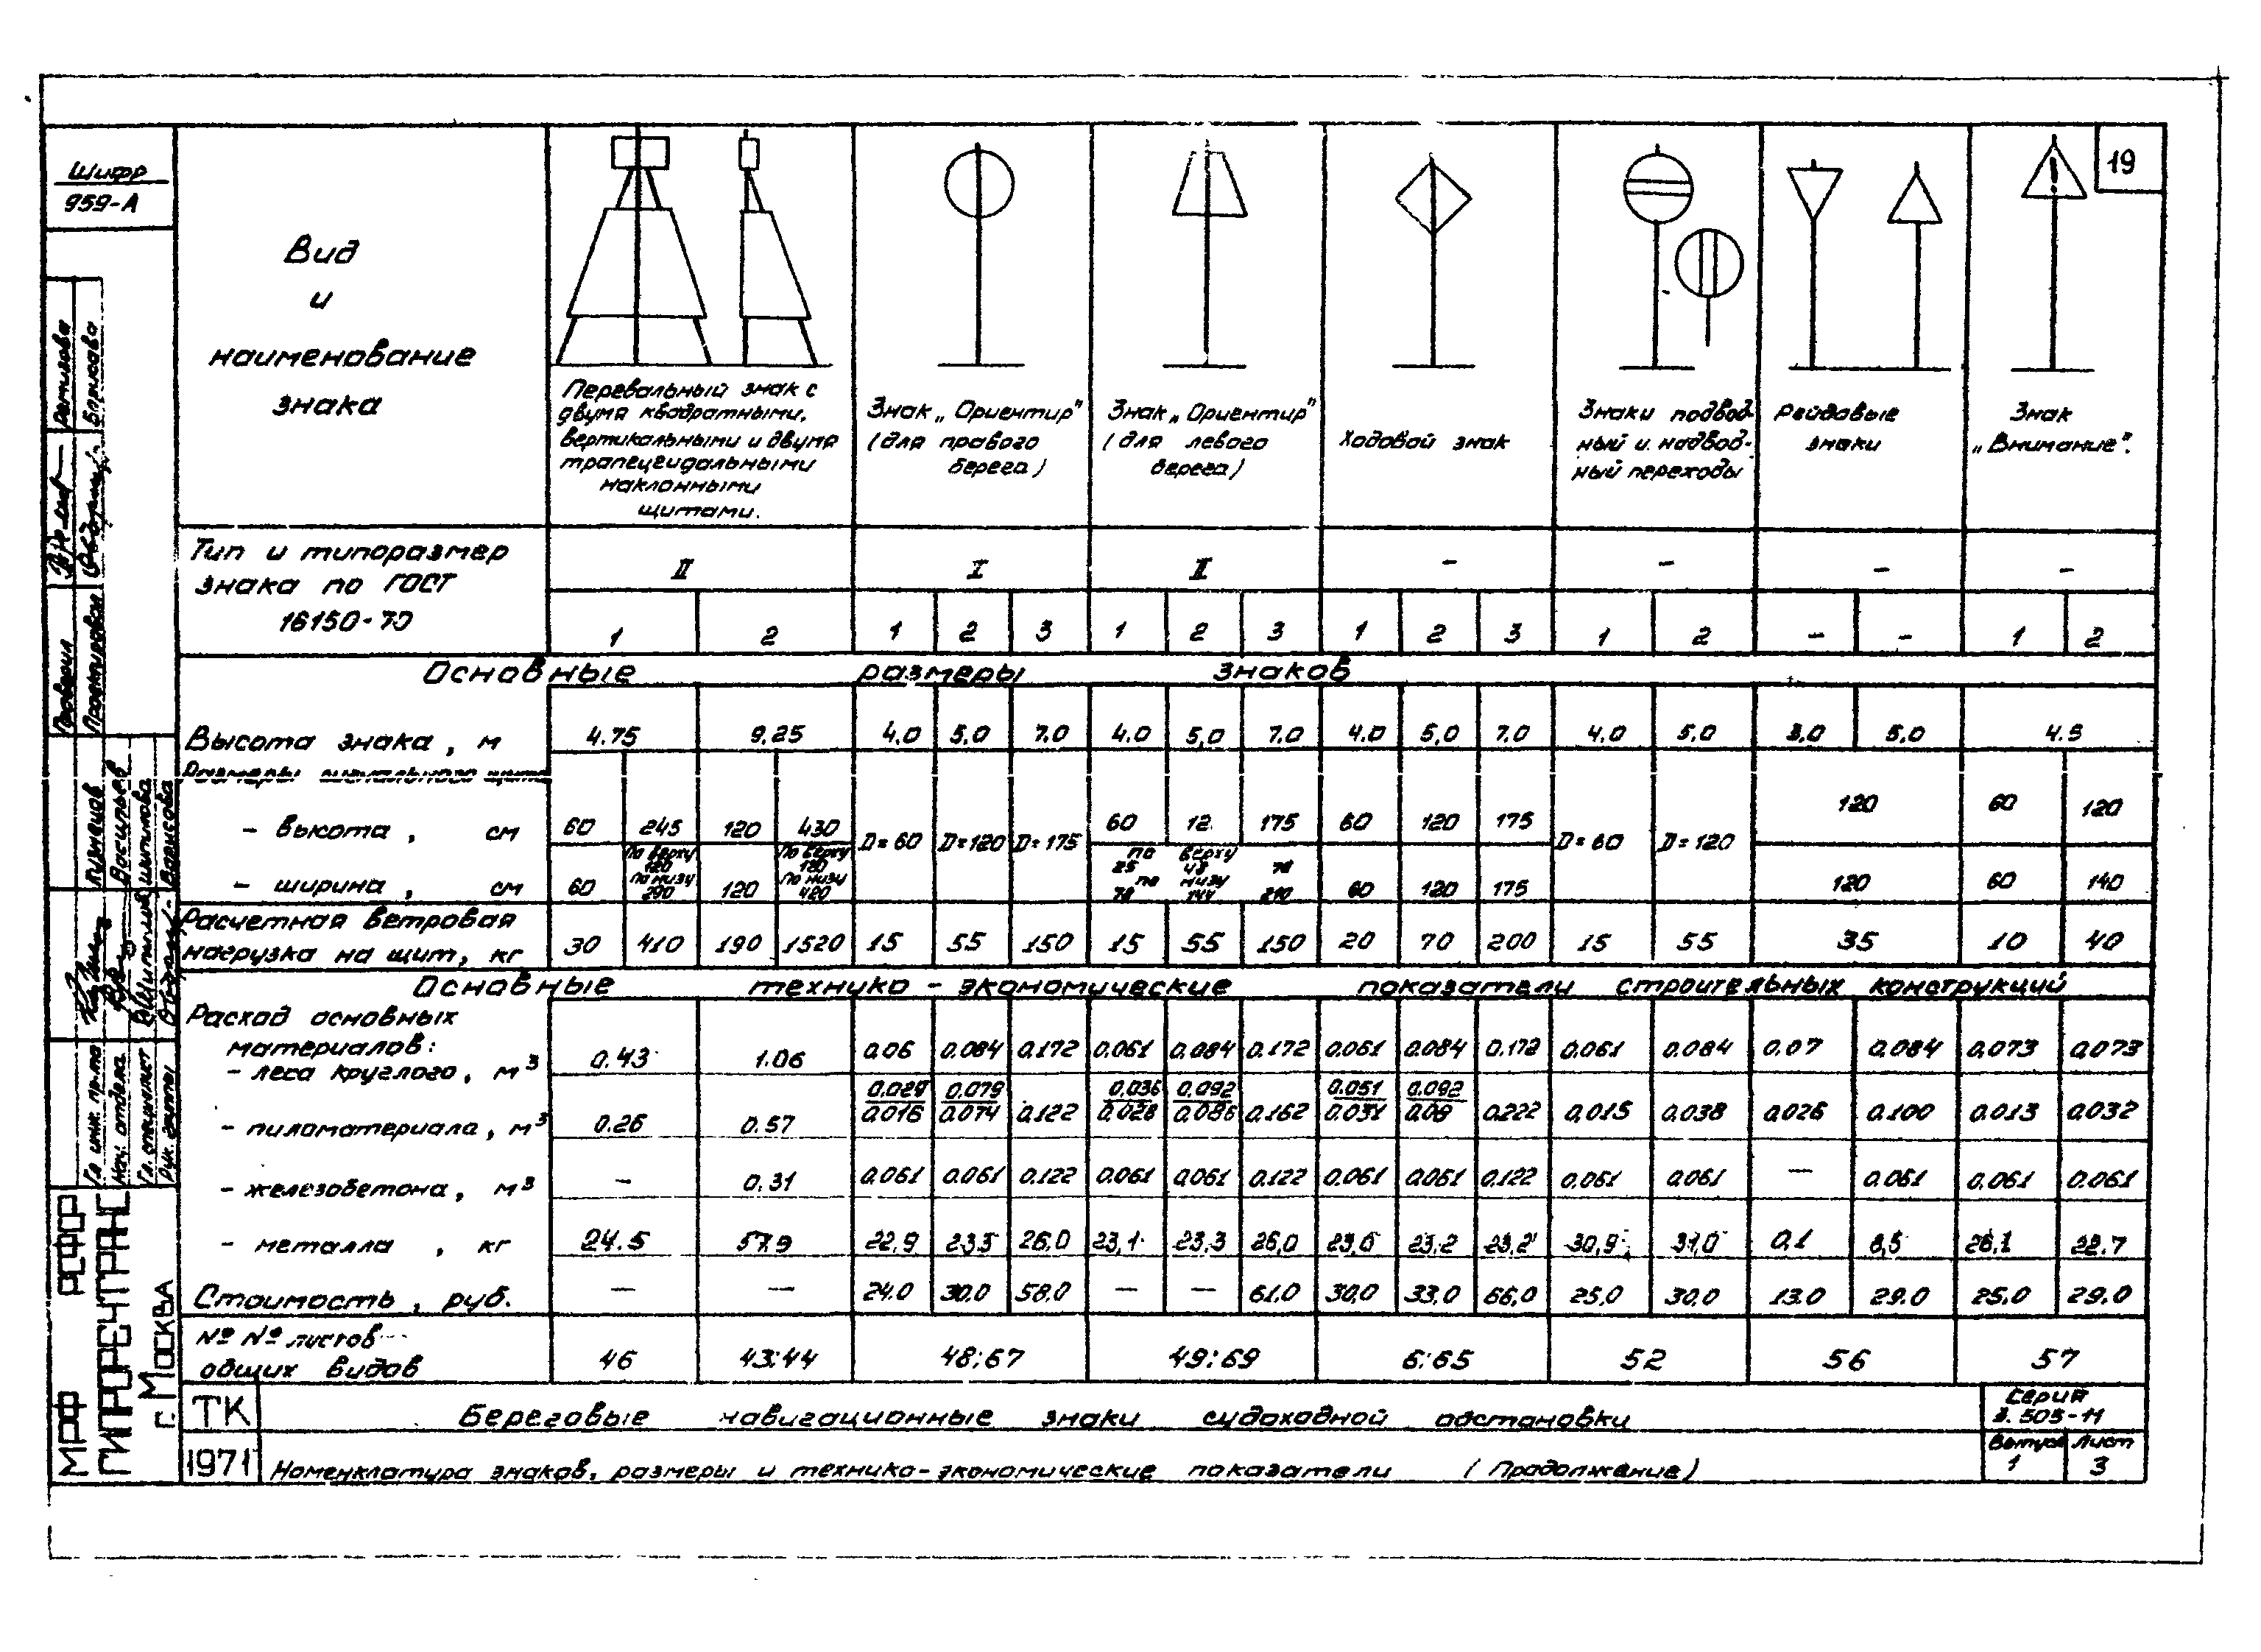 19
Шифр
959-А
Вид
и
наименование
знака
Перевальный знак с
двумя квадратными,
вертикальными и двумя
трапецеидальными
наклонными
щитами.
Знак „Ориентир"
(для правого
берега)
Знак „Ориентир"
(для левого
берега)
Ходовой знак
Знаки подвод-
ный и надвод-
ный переходы
Рейдовые
знаки
Знак
„Внимание".
Тип и типоразмер
знака по ГОСТ
16150-70
II I II - - - -
1 2 1 2 3 1 2 3 1 2 3 1 2 - - 1 2
Основные размеры знаков
Высота знака, м 4.75 9.25 4.0 5.0 7.0 4.0 5,0 7.0 4.0 5,0 7.0 4.0 5.0 3,0 5,0 4.5
Размеры сигнального щита
- высота, см 60 245 120 430 D=60 D=120 D=175 60 12. 175 60 120 175 D=60 D=120 120 60 120
- ширина, см 60 по верху 120 по низу 290 120 по верху 180 по низу 420 по верху 25 43 70 по низу 70 144 210 60 120 175 120 60 140
Расчетная ветровая
нагрузка на щит, кг 30 410 190 1520 15 55 150 15 55 150 20 70 200 15 55 35 10 40
Основные технико-экономические показатели строительных конструкций
Расход основных
материалов:
- леса круглого, м³ 0.43 1.06 0.06 0.084 0.172 0.061 0.084 0.172 0.061 0.084 0.172 0.061 0.084 0.07 0.084 0.073 0.073
0.029 0.079 0.036 0.092 0.051 0.092
- пиломатериала, м³ 0.26 0.57 0.016 0.074 0.122 0.028 0.086 0.162 0.031 0.08 0.222 0.015 0.038 0.026 0.100 0.013 0.032
- железобетона, м³ - 0.31 0.061 0.061 0.122 0.061 0.061 0.122 0.061 0.061 0.122 0.061 0.061 — 0.061 0.061 0.061
- металла, кг 24.5 57.9 22,9 23.3 26.0 23,1 23,3 26,0 23,0 23,2 23,2 30,9 31,0 0,1 8,5 28,1 28.7
Стоимость, руб. — — 24.0 30.0 58.0 — — 61.0 30,0 33.0 66,0 25,0 30,0 13.0 29.0 25,0 29.0
№ № листов
общих видов 46 43:44 48:67 49:69 6:65 52 56 57
ТК
1971
Береговые навигационные знаки судоходной обстановки
Номенклатура знаков, размеры и технико-экономические показатели (Продолжение)
Серия
3.503-11
Выпуск Лист
1 3
Проверил
Проектировал
Кузнецов
Васильев
Шипилова
Гл. инж. пр.та
Нач. отдела
Гл. специалист
Рук. группы
МРФ РСФСР
ГИПРОРЕЧТРАНС
г. Москва